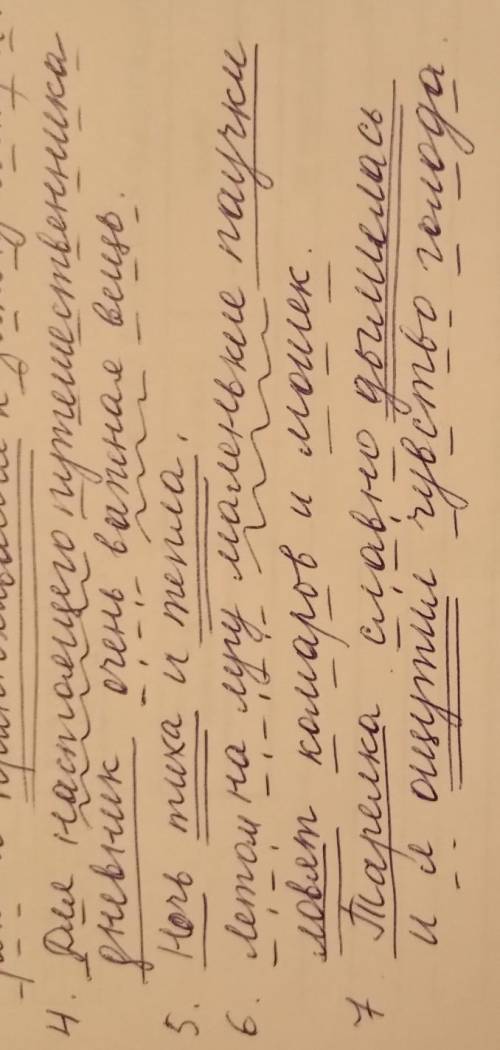 4. Для настоящего путешественника
дневник очень важная вещь.
5. Ночь тиха и тепла.
6. Летом на лугу маленькие паучки
ловят комаров и мошек.
7 Тарелка славно дымилась
и я ощутил чувство голода.